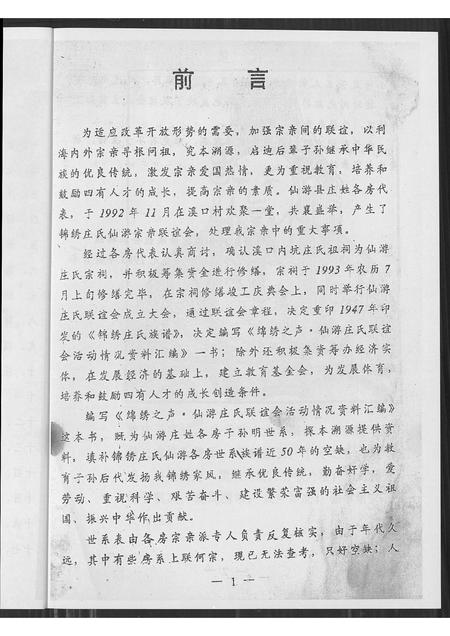 前 言
为适应改革开放形势的需要，加强宗亲间的联谊，以利
海内外宗亲寻根问祖，究本溯源，启迪后辈子孙继承中华民
族的优良传统，激发宗亲爱国热情，更为重视教育，培养和
鼓励四有人才的成长，提高宗亲的素质。仙游县庄姓各房代
表，于1992年11月在溪口村欢聚一堂，共襄盛举，产生了
锦绣庄氏仙游宗亲联谊会，处理我宗亲中的重大事项。
经过各房代表认真商讨，确认溪口内坑庄氏祖祠为仙游
庄氏宗祠，并积极筹集资金进行修缮，宗祠于1993年农历7
月上旬修缮完毕，在宗祠修缮竣工庆典会上，同时举行仙游
庄氏联谊会成立大会，通过联谊会章程，决定重印1947年印
发的《锦绣庄氏族谱》，决定编写《绵绣之声·仙游庄氏联谊
会活动情况资料汇编》一书；除外还积极集资筹办经济实
体，在发展经济的基础上，建立教育基金会，为发展体育，
培养和鼓励四有人才的成长创造条件。
编写《绵绣之声·仙游庄氏联谊会活动情况资料汇编》
这本书，既为仙游庄姓各房子孙明世系，探本溯源提供资
料，填补锦绣庄氏仙游各房世系族谱近50年的空缺，也为教
育子孙后代发扬我锦绣家风，继承优良传统，勤奋好学，爱
劳动、重视科学、艰苦奋斗、建设繁荣富强的社会主义祖
国、振兴中华作出贡献。
世系表由各房宗亲派专人负责反复核实，由于年代久
远，其中有些房系上联何宗，现已无法查考，只好空缺；人
— 1 —